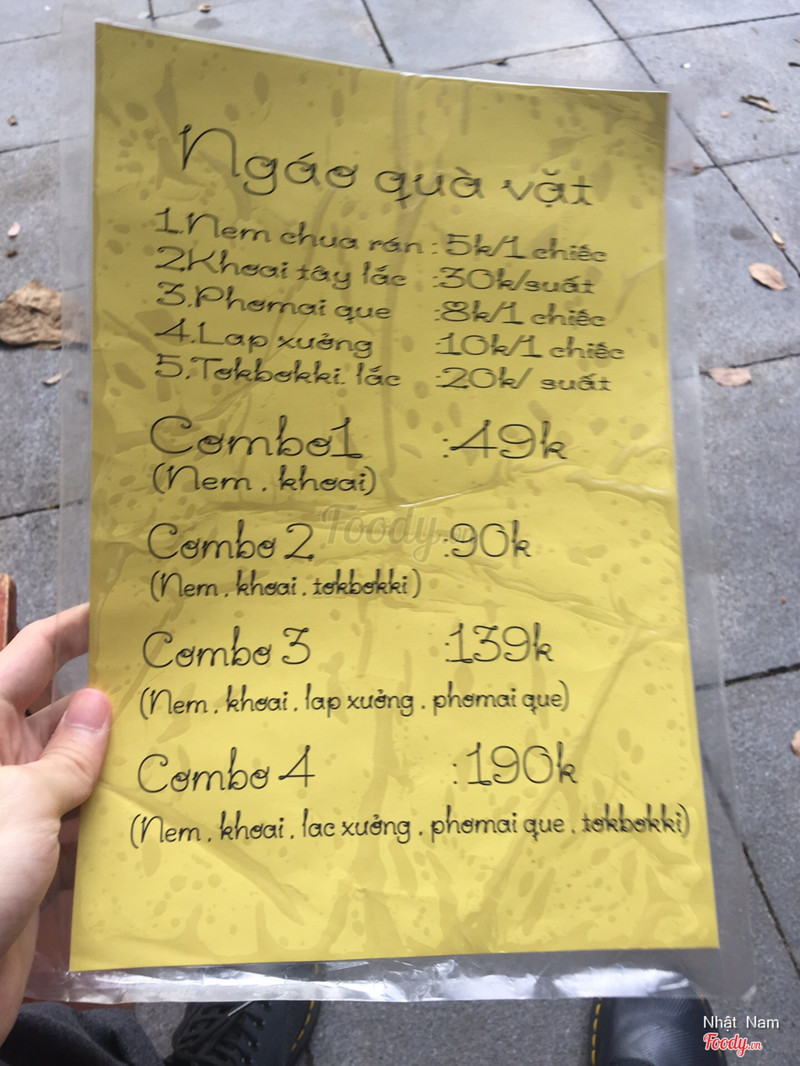 Ngáo quà vặt
1.Nem chua rán : 5k/1 chiếc
2.Khoai tây lắc :30k/suất
3.Phomai que :8k/1 chiếc
4.Lap xưởng :10k/1 chiếc
5.Tokbokki. lắc :20k/ suất
Combo1 :49k
(Nem . khoai)
Foody.vn
Combo 2 :90k
(Nem . khoai . tokbokki)
Combo 3 :139k
(Nem . khoai . lap xưởng . phomai que)
Combo 4 :190k
(Nem . khoai . lac xưởng . phomai que . tokbokki)
Nhật Nam
Foody.vn